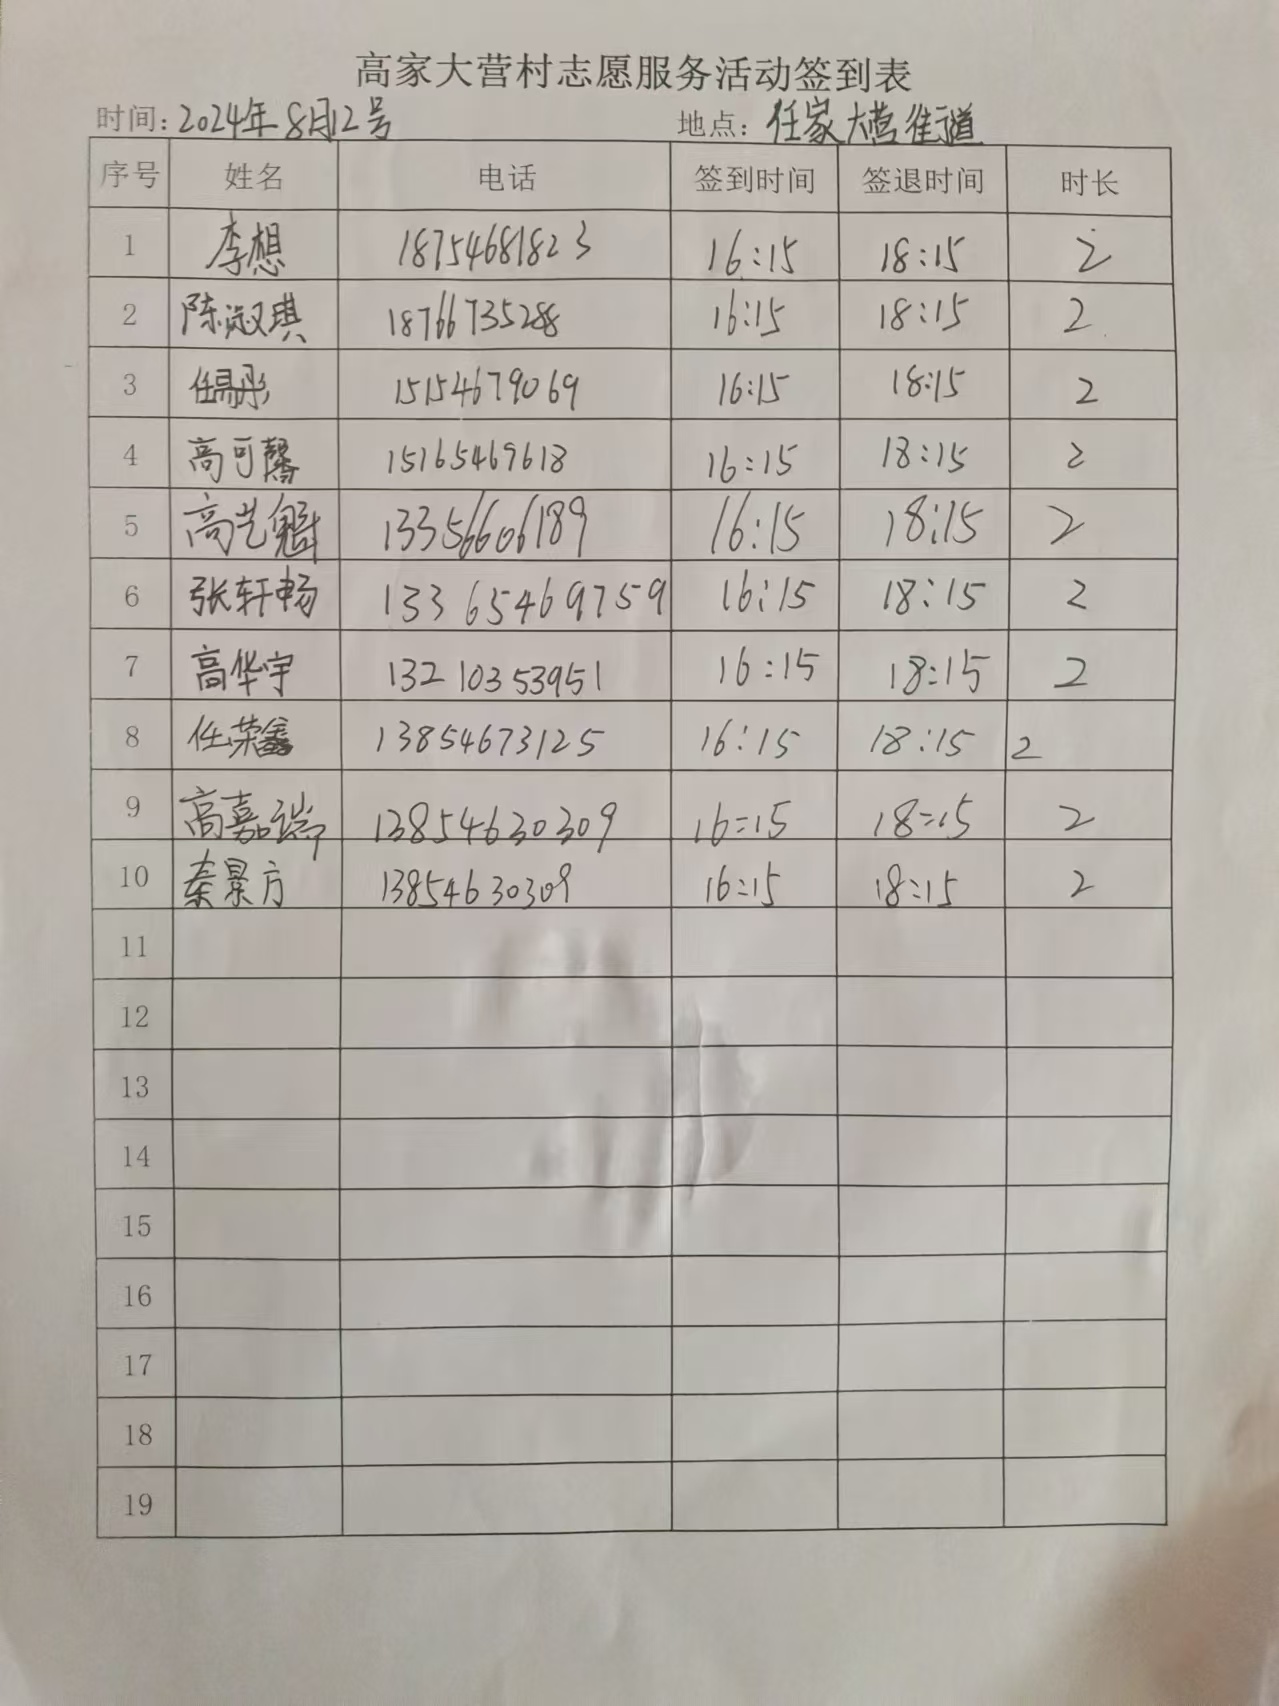 高家大营村志愿服务活动签到表
时间: 2024年8月12号 地点: 任家大营街道
序号 姓名 电话 签到时间 签退时间 时长
1 李想 18754681823 16:15 18:15 2
2 陈淑琪 18766735288 16:15 18:15 2
3 任易彤 15154679069 16:15 18:15 2
4 高可馨 15165469618 16:15 18:15 2
5 高艺魁 13356606189 16:15 18:15 2
6 张轩畅 13365469759 16:15 18:15 2
7 高华宇 13210353951 16:15 18:15 2
8 任荣鑫 13854673125 16:15 18:15 2
9 高嘉瑞 13854630309 16:15 18:15 2
10 秦景方 13854630309 16:15 18:15 2
11
12
13
14
15
16
17
18
19